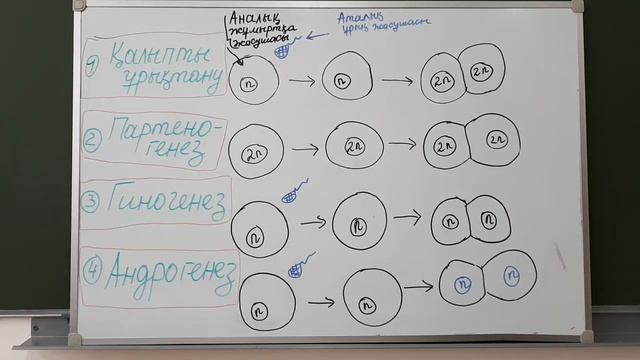 Аналық
жұмыртқа
жасушасы
Аталық
ұрық жасушасы
1 Қалыпты
ұрықтану
n n 2n 2n
2 Партено-
генез
2n 2n 2n 2n
3 Гиногенез
n n n n
4 Андрогенез
n n n n